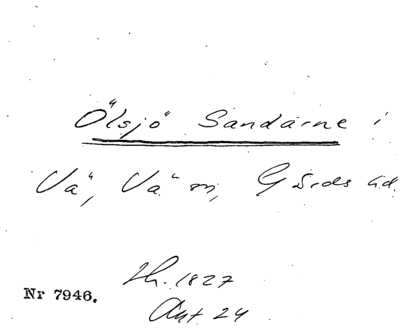 Ölsjö Sandarne i
Vä, Vä sn, Gärds hd.
Nr 7946.
Ih. 1827
Akt 24